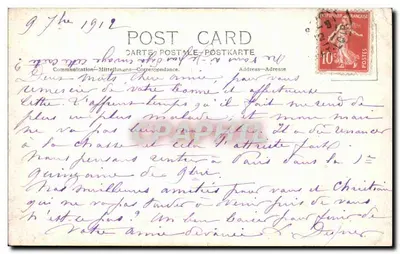 9 7bre 1912
POST CARD
CARTE POSTALE - POSTKARTE
Communication - Mitteilung - Correspondance. Address - Adresse
10
POSTES
Deux mots chère amie, pour vous
remercier de votre bonne et affectueuse
lettre. L'affreux temps qu'il fait me rend de
plus en plus malade, et mon mari
ne va pas Il a du renoncer
à la chasse et cela l'attriste fort.
Nous pensons rentrer à Paris dans la 1ère
quinzaine de 8bre.
Mes meilleures amitiés pour vous et Christian
qui ne va pas tarder à venir près de vous
n'est ce pas? Un bon baiser pour finir de
votre amie dévouée